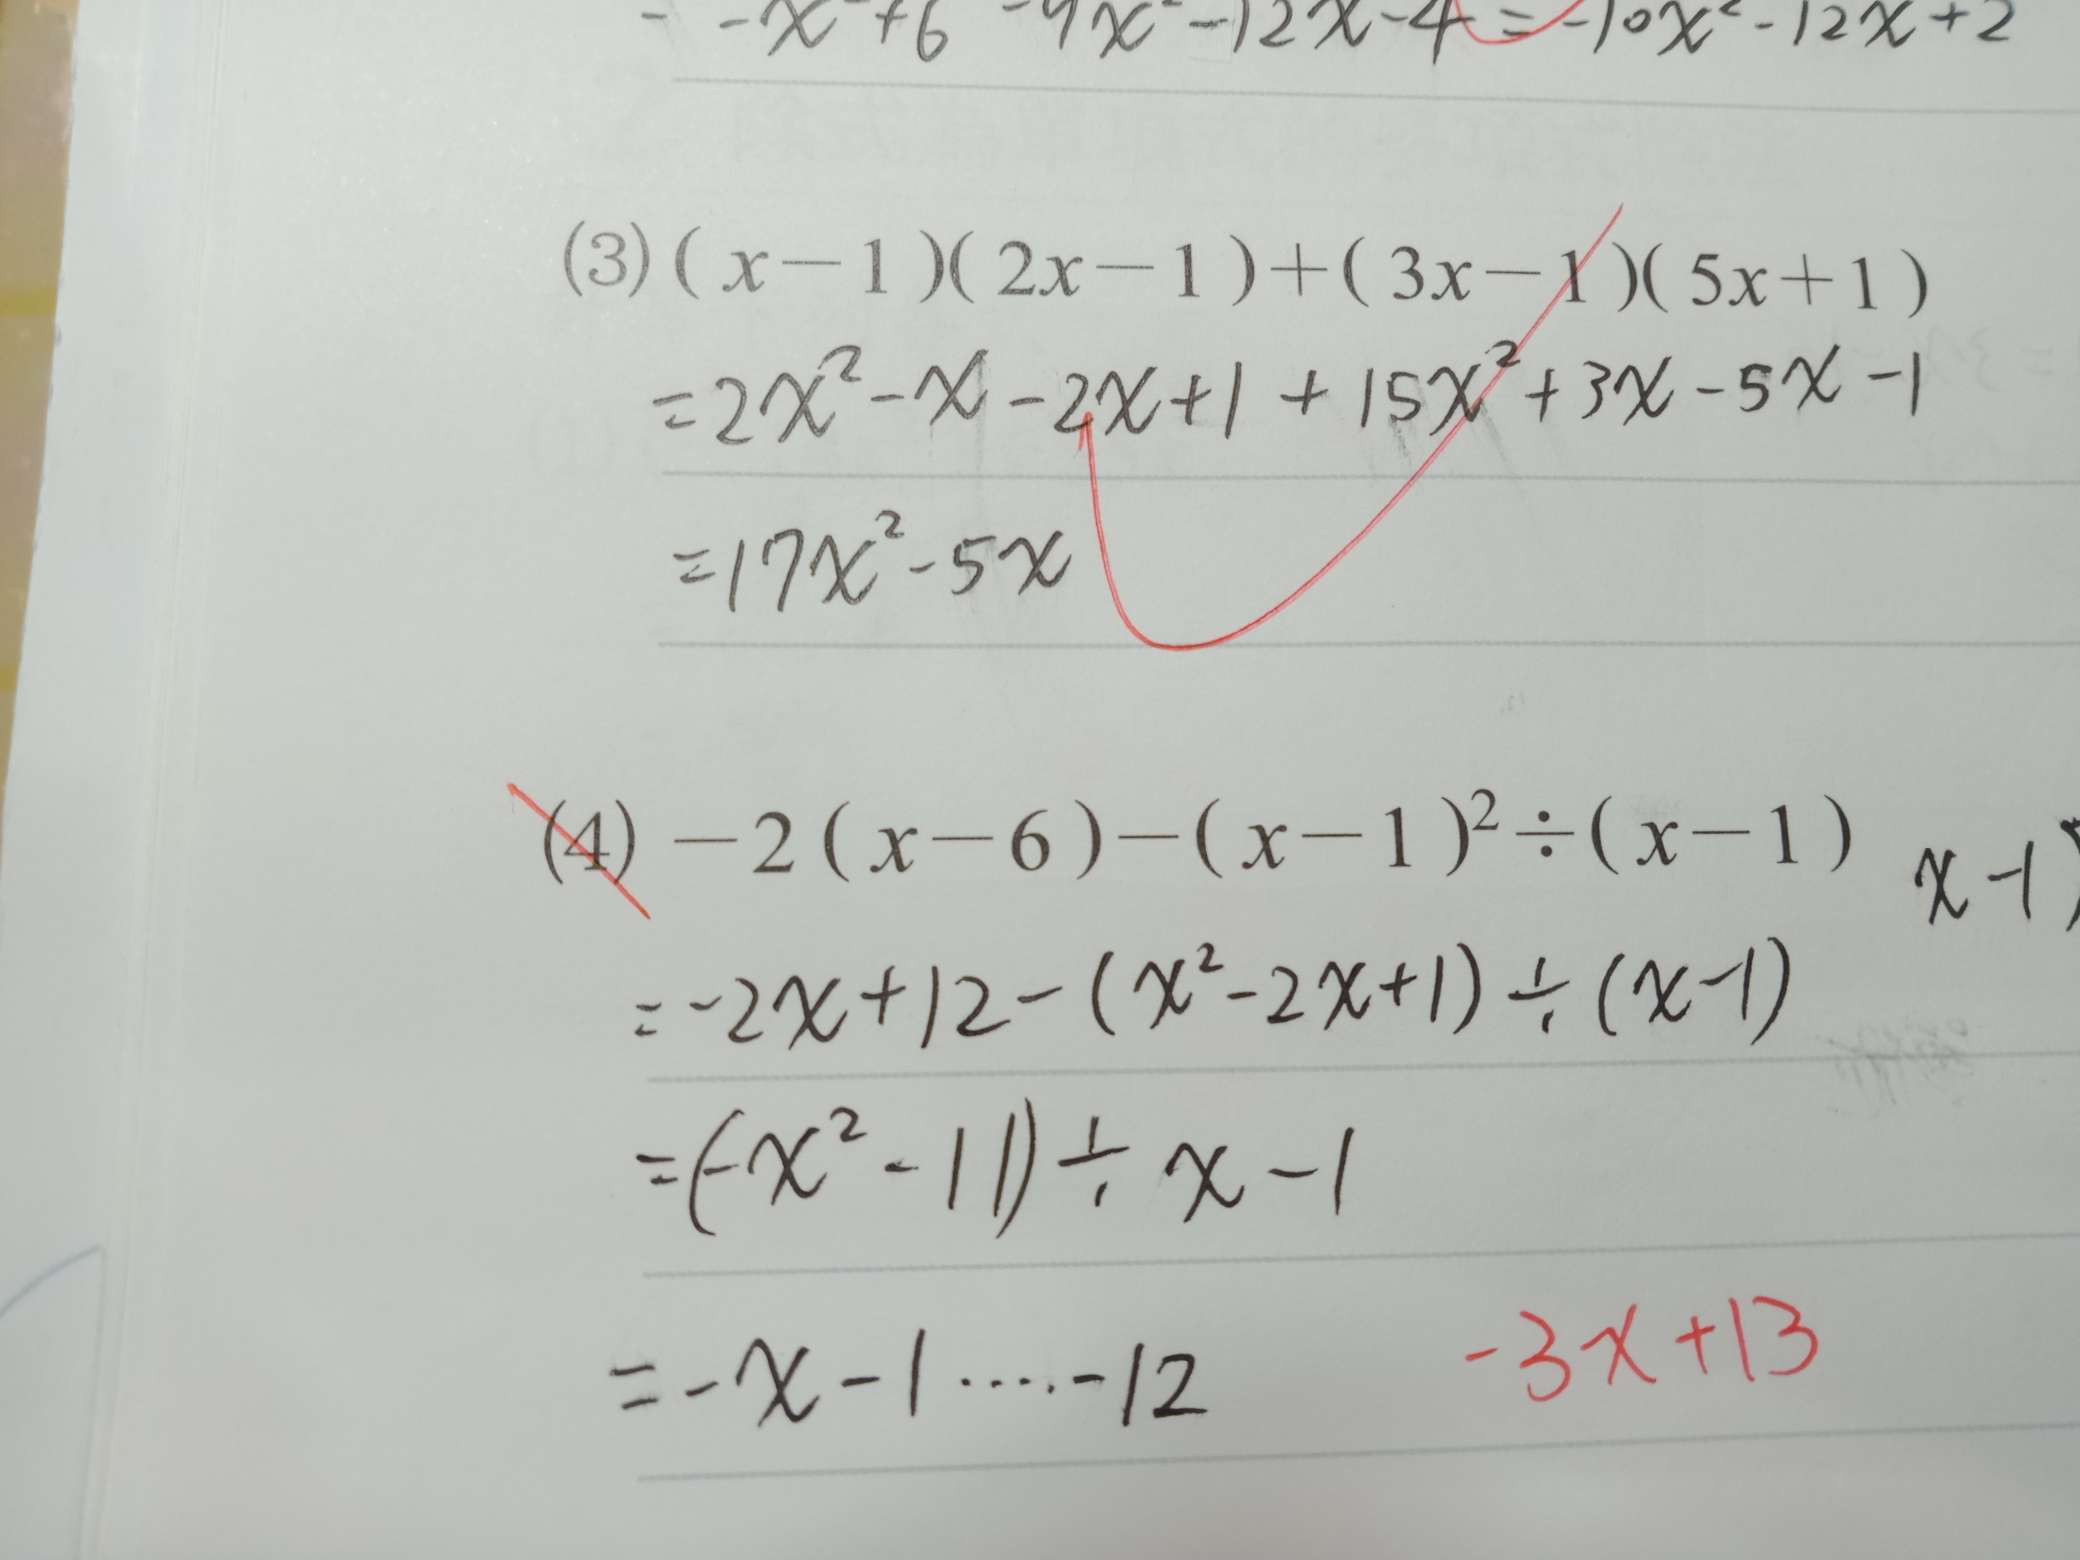 - -x² +6 -9x² -12x -4 = -10x² -12x +2
(3) (x-1)(2x-1)+(3x-1)(5x+1)
=2x²-x-2x+1+15x²+3x-5x-1
=17x²-5x
(4) -2(x-6)-(x-1)²÷(x-1)
x-1)
=-2x+12-(x²-2x+1)÷(x-1)
=(-x²-11)÷x-1
=-x-1·····-12
-3x+13